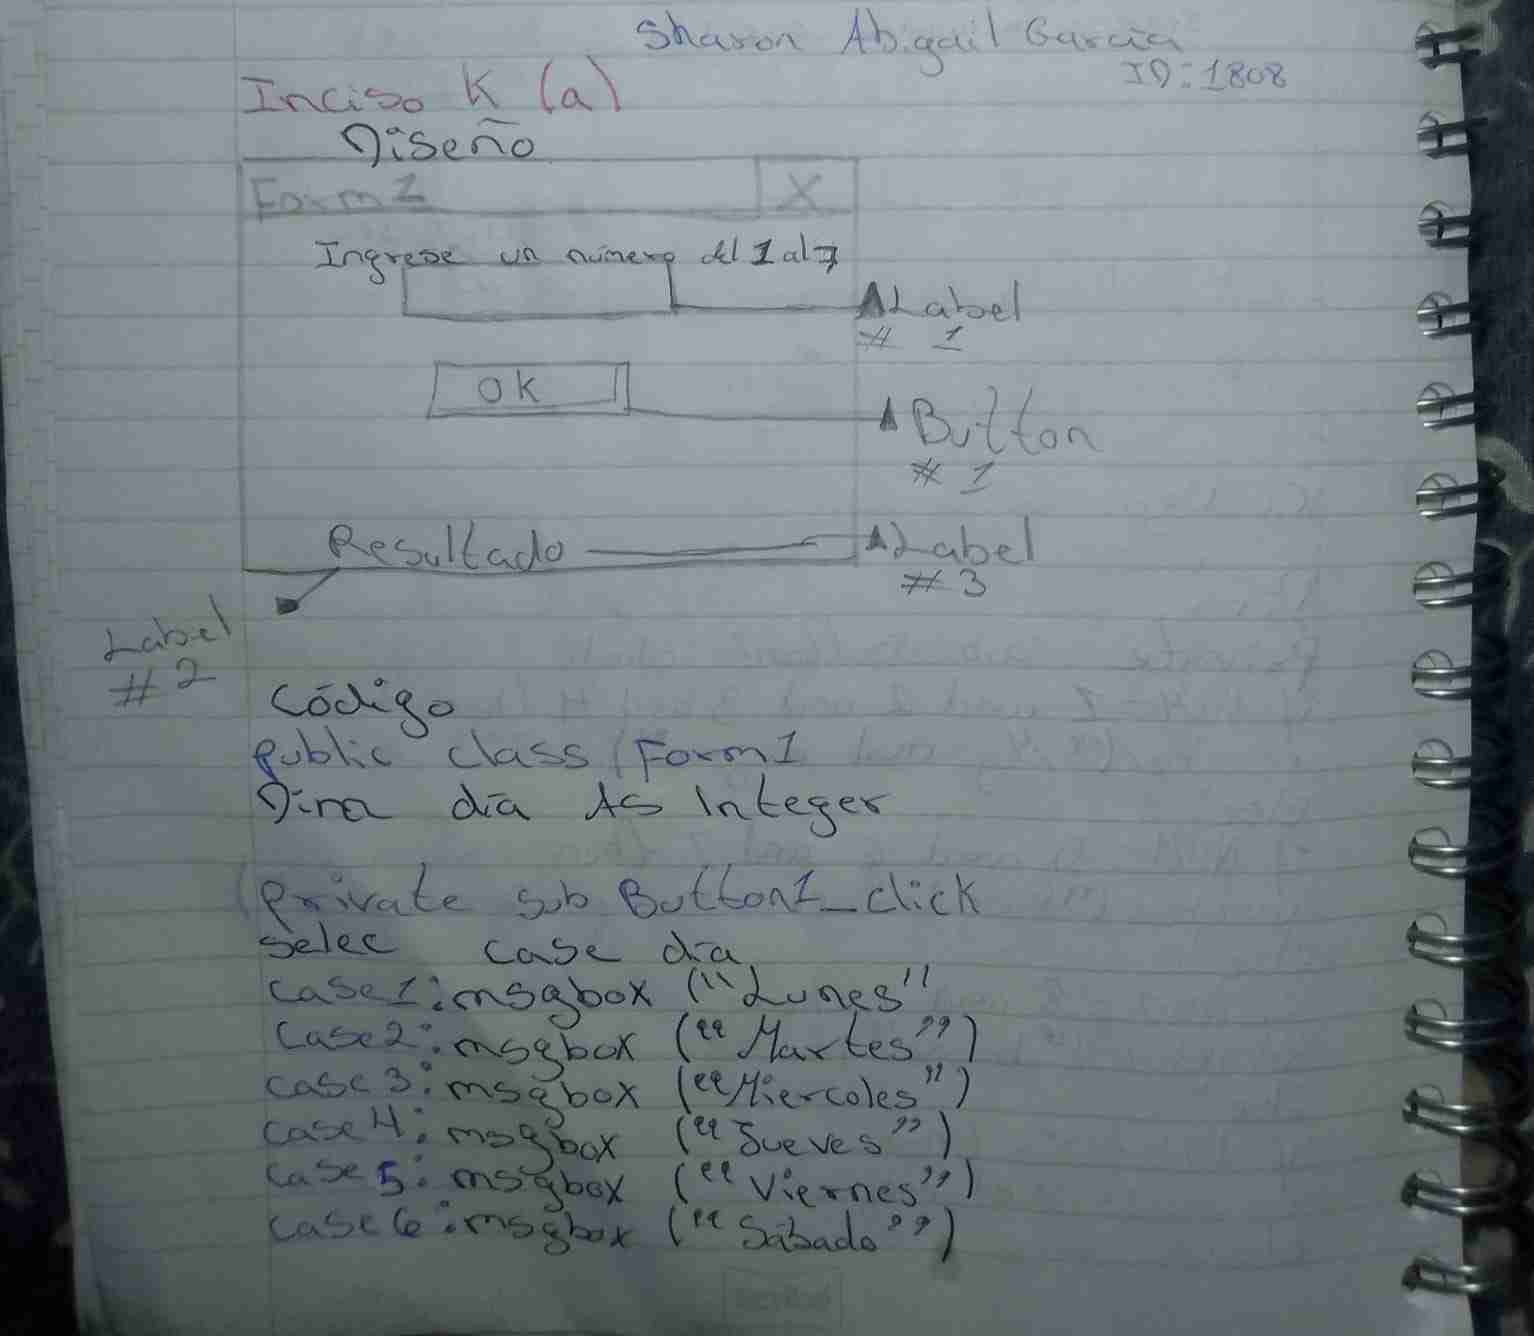 Sharon Abigail García
ID: 1808
Inciso K (a)
Diseño
Form 1 X
Ingrese un número del 1 al 7
Label
# 1
OK
Button
# 1
Resultado
Label
# 3
Label
# 2
Código
public class Form1
Dim día As Integer
Private sub Button1_click
Selec case día
case1: msgbox ("Lunes"
Case2: msgbox ("Martes")
case 3: msgbox ("Miercoles")
case 4: msgbox ("Jueves")
case 5: msgbox ("Viernes")
case 6: msgbox ("Sábado")